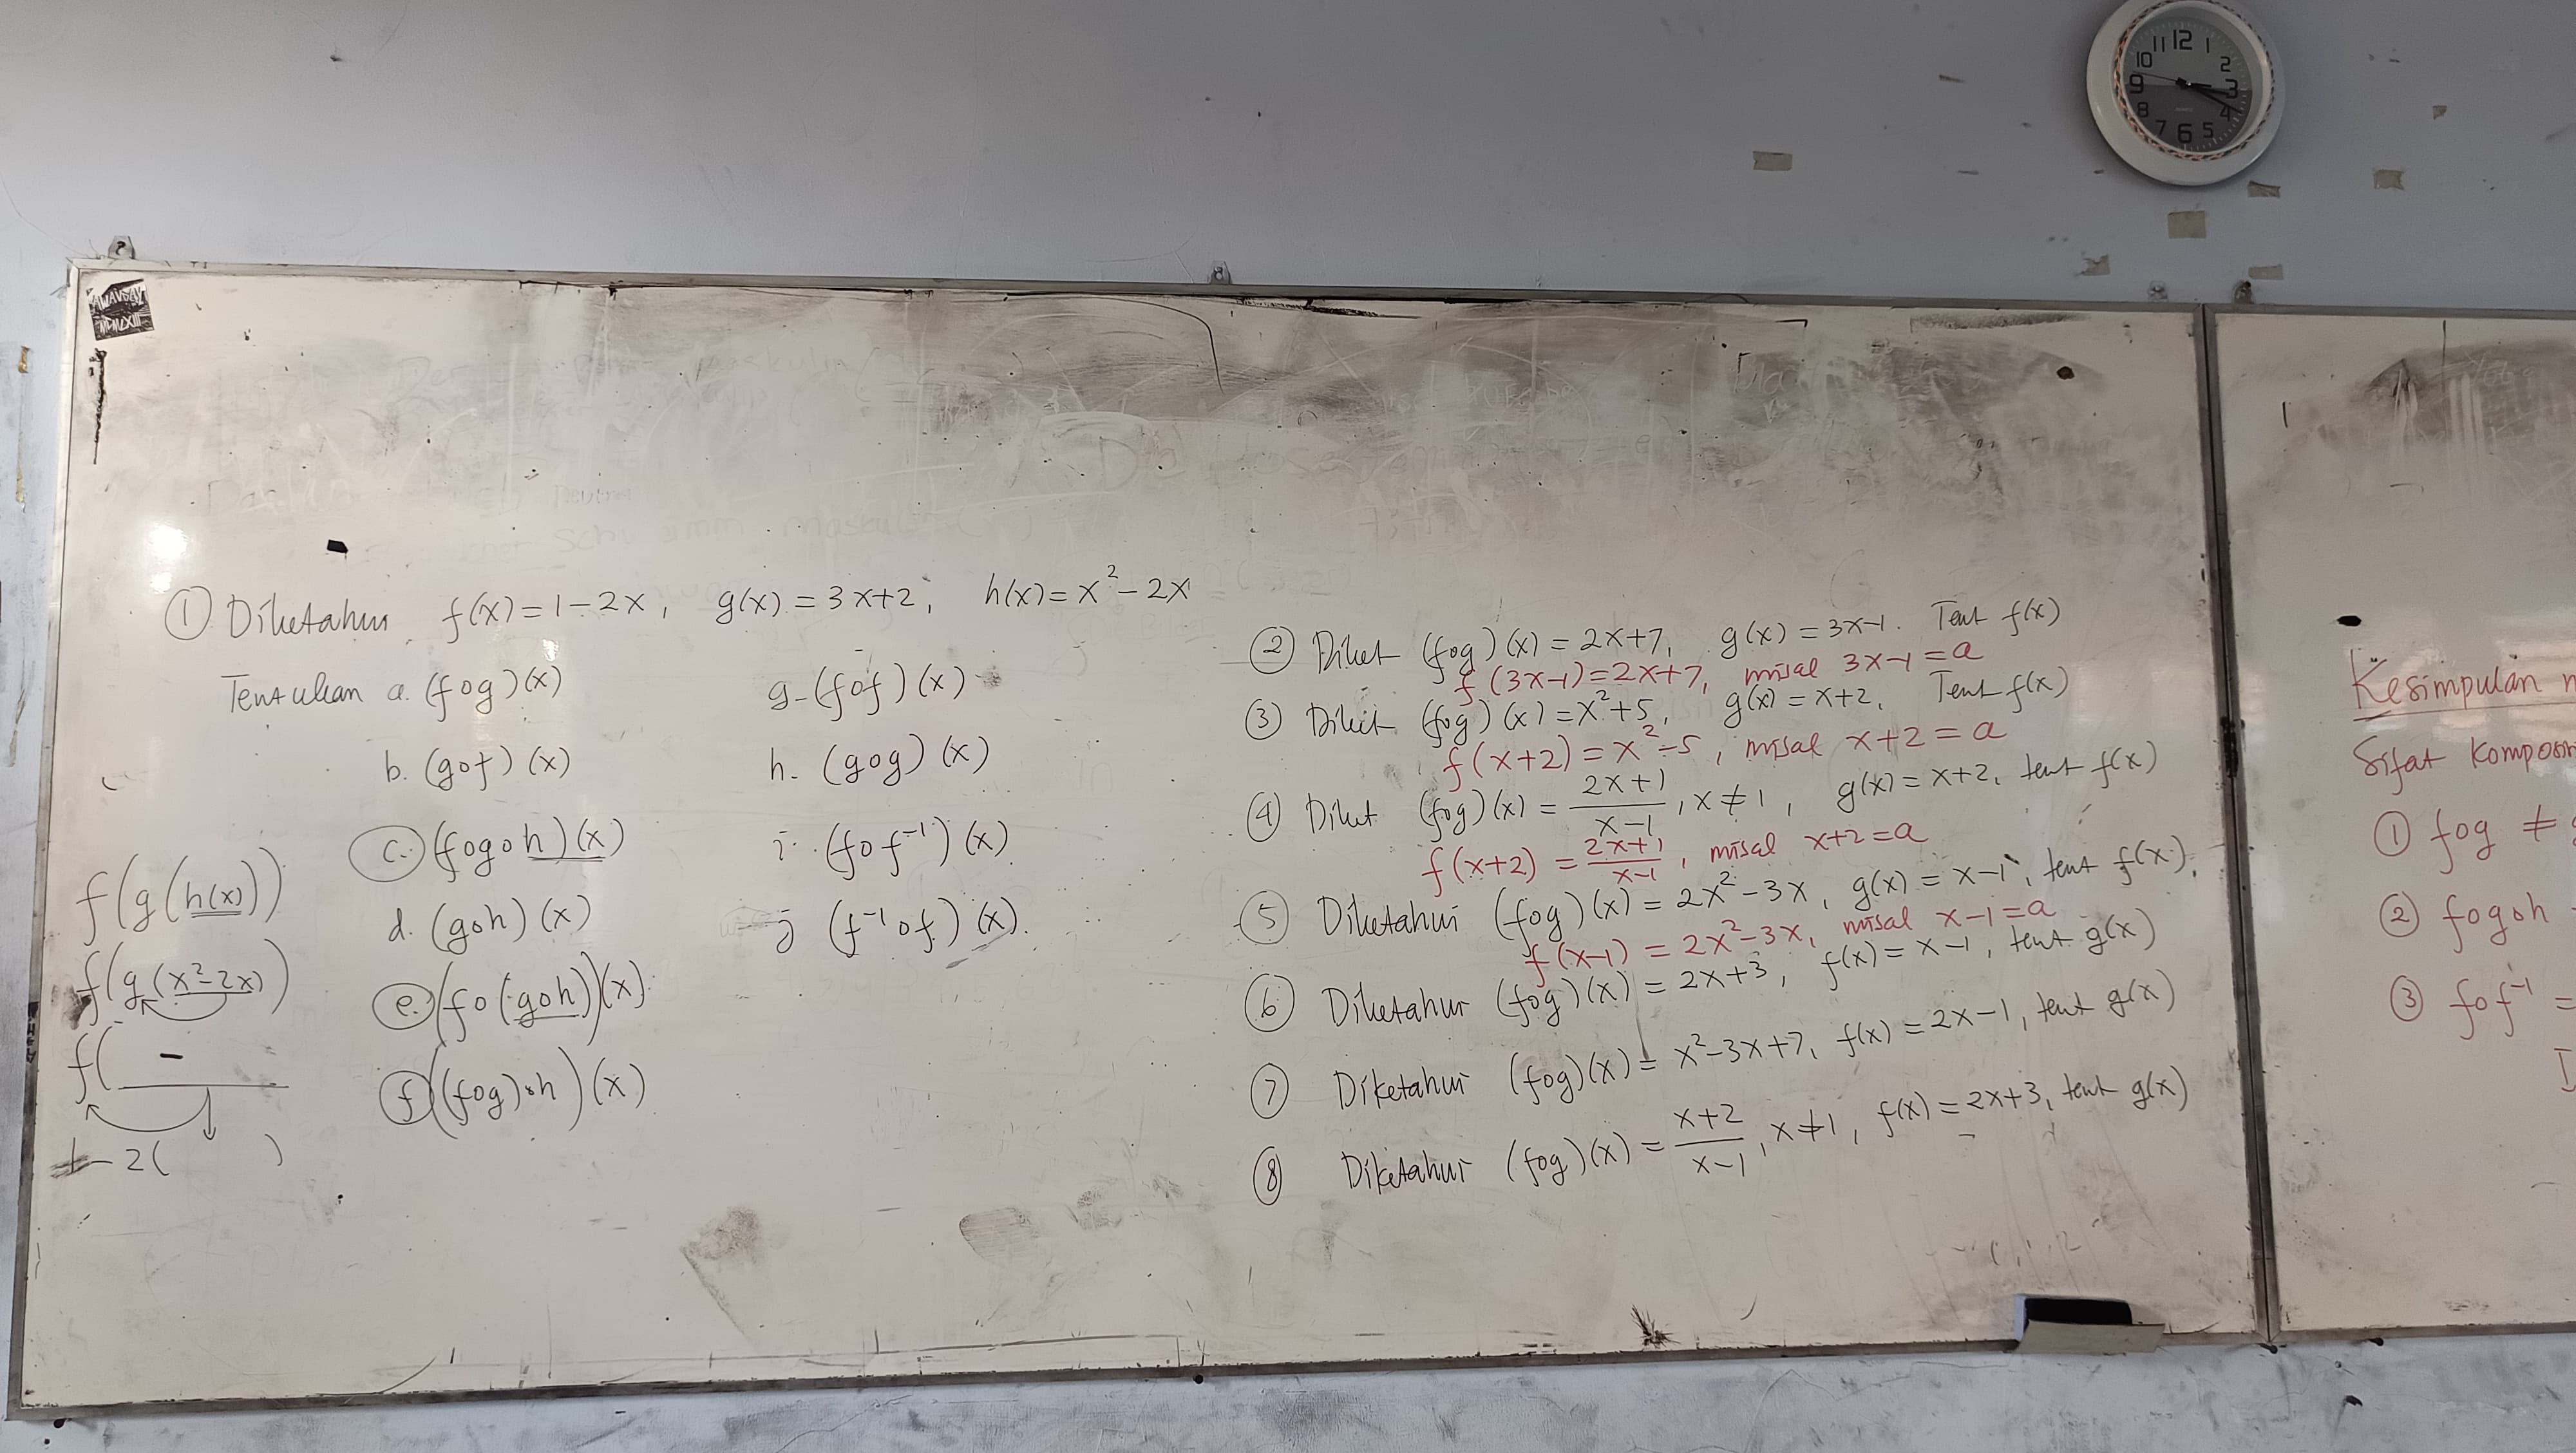 12
11
1
10
2
9
3
8
4
7
6
5
① Diketahui f(x) = 1 - 2x, g(x) = 3x+2, h(x) = x² - 2x
Tentukan a. (fog)(x)
b. (gof)(x)
c. (fogoh)(x)
d. (goh)(x)
e. (fo(goh))(x)
f. ((fog)oh)(x)
g. (fof)(x)
h. (gog)(x)
i. (fof⁻¹)(x)
j (f⁻¹of)(x).
f(g(h(x)))
f(g(x²-2x))
f( -
1-2( )
② Diket (fog)(x) = 2x+7, g(x) = 3x-1. Tent f(x)
f(3x-1) = 2x+7, misal 3x-1 = a
③ Diket (fog)(x) = x²+5, g(x) = x+2, Tent f(x)
f(x+2) = x²-5, misal x+2 = a
④ Diket (fog)(x) = 2x+1/x-1, x≠1, g(x) = x+2, tent f(x)
f(x+2) = 2x+1/x-1, misal x+2 = a
⑤ Diketahui (fog)(x) = 2x²-3x, g(x) = x-1, tent f(x),
f(x-1) = 2x²-3x, misal x-1 = a
⑥ Diketahui (fog)(x) = 2x+3, f(x) = x-1, tent g(x)
⑦ Diketahui (fog)(x) = x²-3x+7, f(x) = 2x-1, tent g(x)
⑧ Diketahui (fog)(x) = x+2/x-1, x≠1, f(x) = 2x+3, tent g(x)
Kesimpulan
Sifat
① fog ≠
② fogoh
③ fof⁻¹ =